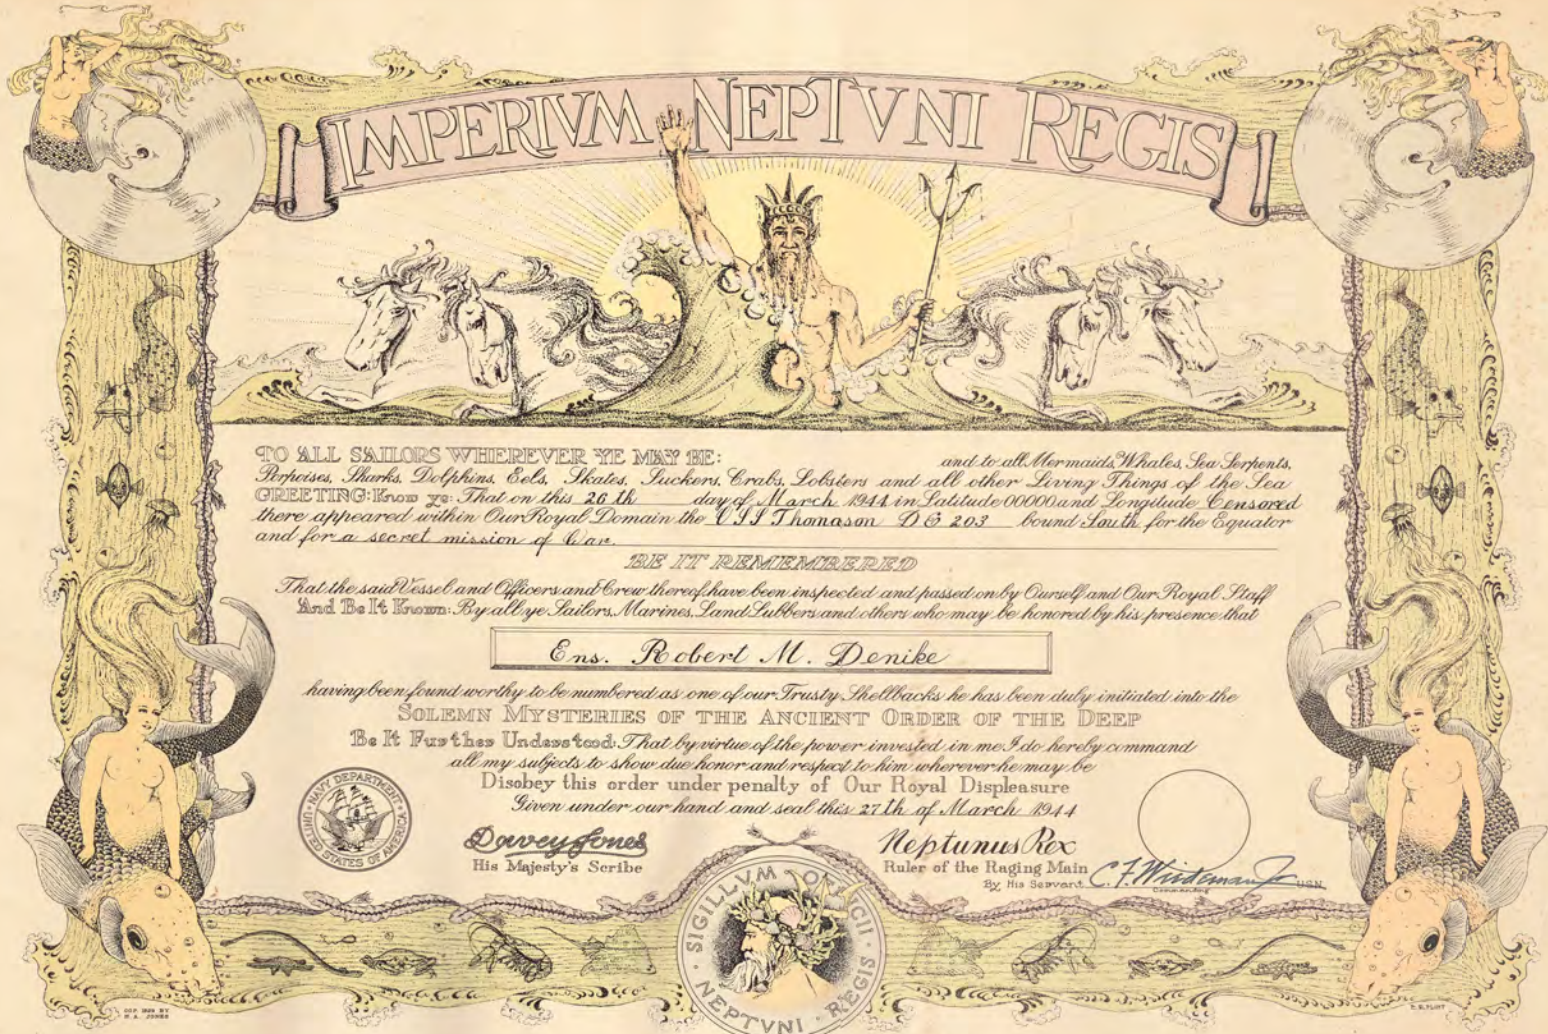 IMPERIVM NEPTVNI REGIS
TO ALL SAILORS WHEREVER YE MAY BE: and to all Mermaids, Whales, Sea Serpents,
Porpoises, Sharks, Dolphins, Eels, Skates, Suckers, Crabs, Lobsters and all other Living Things of the Sea
GREETING: Know ye: That on this 26th day of March 1944 in Latitude 00000 and Longitude Censored
there appeared within Our Royal Domain the USS Thomason DE 203 bound South for the Equator
and for a secret mission of War.
BE IT REMEMBERED
That the said Vessel and Officers and Crew thereof have been inspected and passed on by Ourself and Our Royal Staff
And Be It Known: By all ye Sailors, Marines, Land Lubbers and others who may be honored by his presence that
Ens. Robert M. Denike
having been found worthy to be numbered as one of our Trusty Shellbacks he has been duly initiated into the
SOLEMN MYSTERIES OF THE ANCIENT ORDER OF THE DEEP
Be It Further Understood: That by virtue of the power invested in me I do hereby command
all my subjects to show due honor and respect to him wherever he may be
Disobey this order under penalty of Our Royal Displeasure
Given under our hand and seal this 27th of March 1944
NAVY DEPARTMENT
UNITED STATES OF AMERICA
Davey Jones
His Majesty's Scribe
Neptunus Rex
Ruler of the Raging Main
By His Servant C. F. Jr. USN
Commanding
SIGILLVM
NEPTVNI REGIS